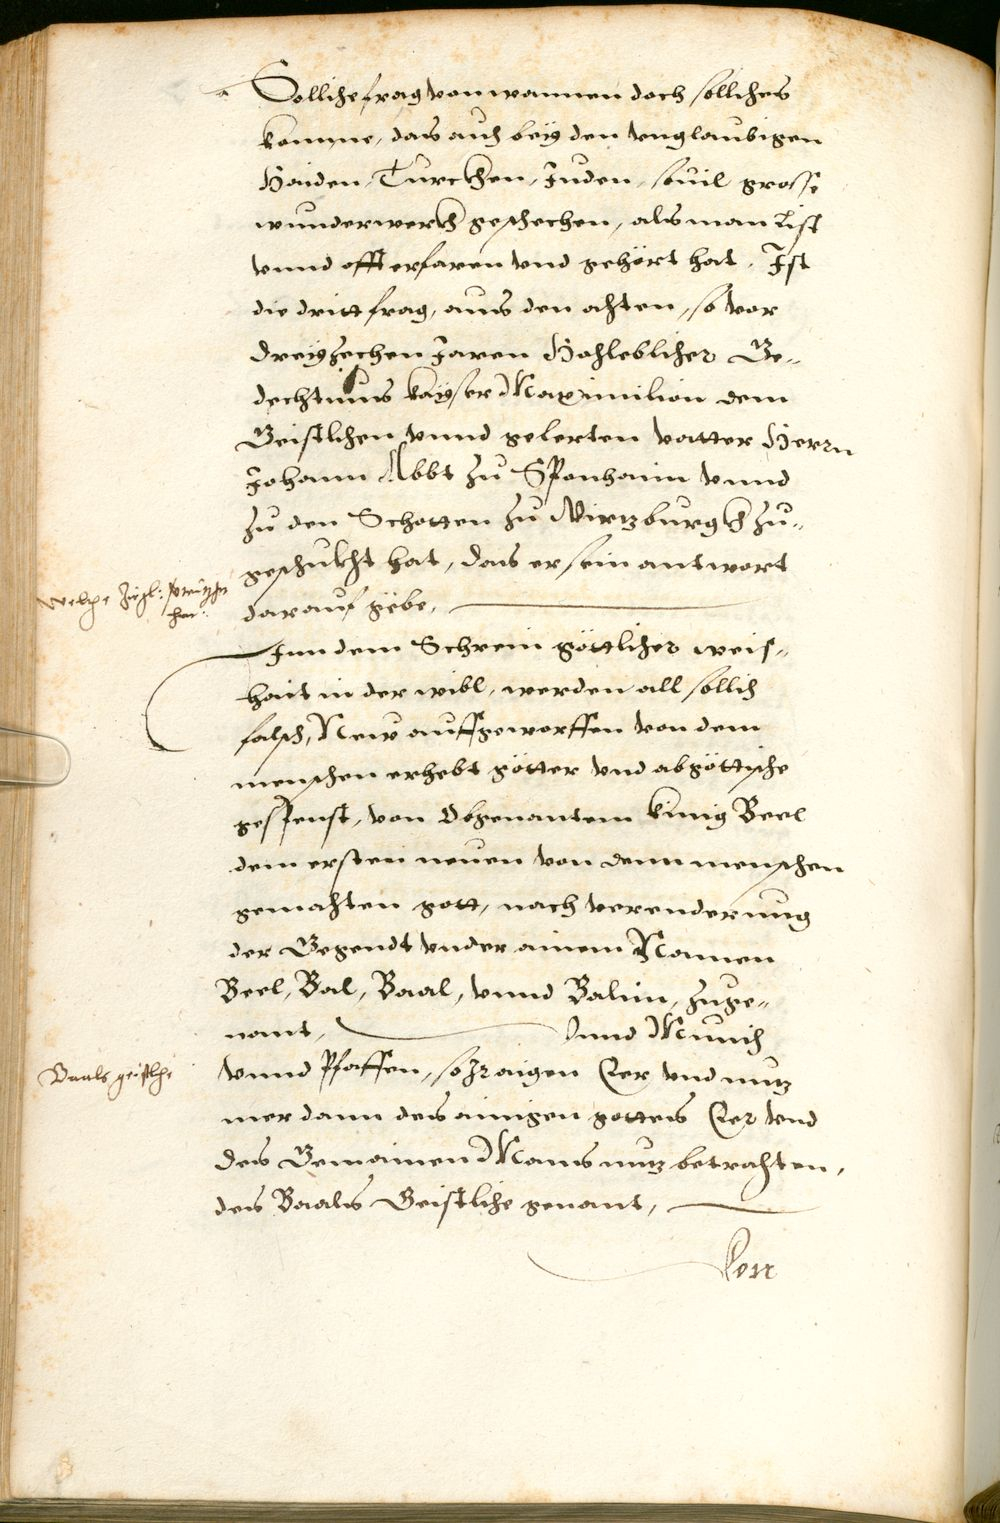 Solliche frag von wannen doch solliches
komme, das auch bey den vnglaubigen
Haiden, Turckhen, Juden, souil grosse
wunderwerckh geschechen, als man List
vnnd offt erfaren vnd gehört hat. Ist
die dritt frag, auss den achten, so vor
dreyzechen Jaren Hochloblicher Ge-
dechtnus kayser Maximilian dem
Geistlichen vnnd gelerten vatter Herrn
Johann Abbt zu Sponhaim vnnd
zu den Schotten zu Wirtzburgkh zu-
geschickht hat, das er sein antwort
darauf gebe,
Inn dem Schrein göttlicher weis-
hait in der bibl, werden all sollich
falsch, New auffgeworffen von dem
menschen erhebt götter vnd abgöttische
gespenst, von Obgenantem kinig Beel
dem ersten neuen von dem menschen
gemachten gott, nach verenderung
der Gegendt vnder ainem Namen
Beel, Bal, Baal, vnnd Balim, zuge-
nant,
Vnnd Munich
Baals geistliche
vnnd Pfaffen, so Ir aigen Eer vnd nutz
mer dann des ainigen gottes Eer vnd
des Gemainen Mans nutz betrachten,
des Baals Geistliche genant,